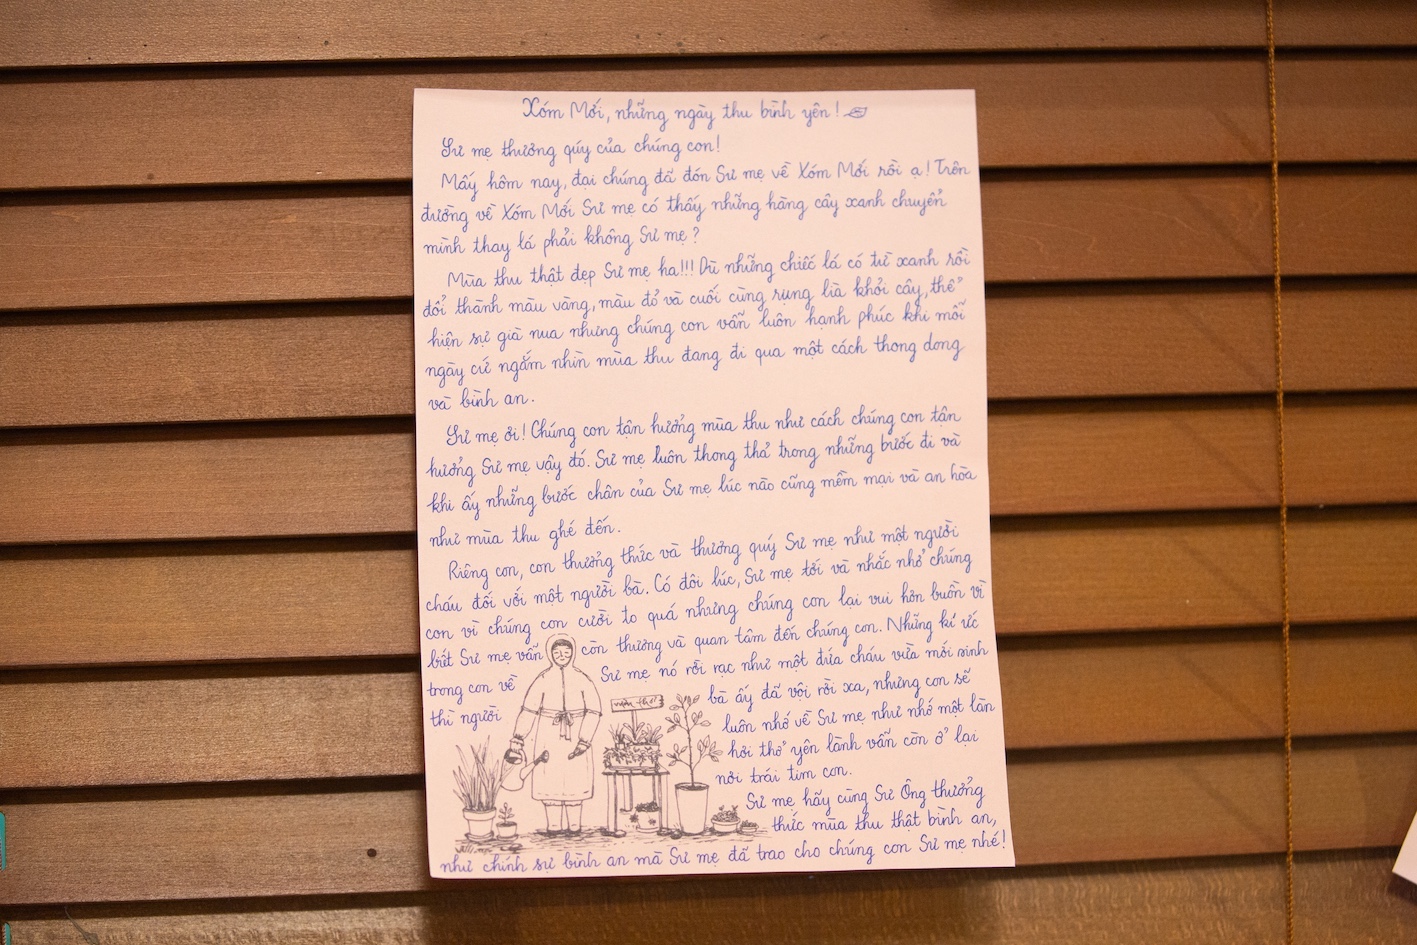 Xóm Mới, những ngày thu bình yên!
Sư mẹ thương qúy của chúng con!
Mấy hôm nay, đại chúng đã đón Sư mẹ về Xóm Mới rồi ạ! Trên
đường về Xóm Mới Sư mẹ có thấy những hàng cây xanh chuyển
mình thay lá phải không Sư mẹ?
Mùa thu thật đẹp Sư mẹ ha!!! Dù những chiếc lá có từ xanh rồi
đổi thành màu vàng, màu đỏ và cuối cùng rụng lìa khỏi cây, thể
hiện sự già nua nhưng chúng con vẫn luôn hạnh phúc khi mỗi
ngày cứ ngắm nhìn mùa thu đang đi qua một cách thong dong
và bình an.
Sư mẹ ơi! Chúng con tận hưởng mùa thu như cách chúng con tận
hưởng Sư mẹ vậy đó. Sư mẹ luôn thong thả trong những bước đi và
khi ấy những bước chân của Sư mẹ lúc nào cũng mềm mại và an hòa
như mùa thu ghé đến.
Riêng con, con thưởng thức và thương quý Sư mẹ như một người
cháu đối với một người bà. Có đôi lúc, Sư mẹ tới và nhắc nhở chúng
con vì chúng con cười to quá nhưng chúng con lại vui hơn buồn vì
biết Sư mẹ vẫn còn thương và quan tâm đến chúng con. Những kí ức
trong con về Sư mẹ nó rời rạc như một đứa cháu vừa mới sinh
thì người bà ấy đã vội rời xa, nhưng con sẽ
luôn nhớ về Sư mẹ như nhớ một làn
hơi thở yên lành vẫn còn ở lại
nơi trái tim con.
Sư mẹ hãy cùng Sư Ông thưởng
thức mùa thu thật bình an,
như chính sự bình an mà Sư mẹ đã trao cho chúng con Sư mẹ nhé!